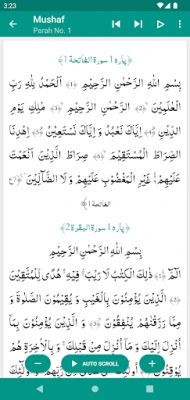 3:23
Mushaf
Parah No. 1
﴿پاره ۱ سورة الفاتحة 1﴾
بِسْمِ اللّٰهِ الرَّحْمٰنِ الرَّحِيْمِ ﴿1﴾ اَلْحَمْدُ لِلّٰهِ رَبِّ
الْعٰلَمِيْنَ ﴿2﴾ الرَّحْمٰنِ الرَّحِيْمِ ﴿3﴾ مٰلِكِ يَوْمِ
الدِّيْنِ ﴿4﴾ اِيَّاكَ نَعْبُدُ وَ اِيَّاكَ نَسْتَعِيْنُ ﴿5﴾ اِهْدِنَا
الصِّرَاطَ الْمُسْتَقِيْمَ ﴿6﴾ صِرَاطَ الَّذِيْنَ اَنْعَمْتَ
عَلَيْهِمْ غَيْرِ الْمَغْضُوْبِ عَلَيْهِمْ وَ لَا الضَّآلِّيْنَ ﴿7﴾
الفاتحة 1﴾
﴿پاره ۱ سورة البقرة 2﴾
بِسْمِ اللّٰهِ الرَّحْمٰنِ الرَّحِيْمِ
الٓمّٓ ﴿1﴾ ذٰلِكَ الْكِتٰبُ لَا رَيْبَ فِيْهِ هُدًى لِّلْمُتَّقِيْنَ
﴿2﴾ الَّذِيْنَ يُؤْمِنُوْنَ بِالْغَيْبِ وَ يُقِيْمُوْنَ الصَّلٰوةَ وَ
مِمَّا رَزَقْنٰهُمْ يُنْفِقُوْنَ ﴿3﴾ وَ الَّذِيْنَ يُؤْمِنُوْنَ بِمَاۤ
اُنْزِلَ اِلَيْكَ وَ مَاۤ اُنْزِلَ مِنْ قَبْلِكَ وَ بِالْاٰخِرَةِ هُمْ
AUTO SCROLL